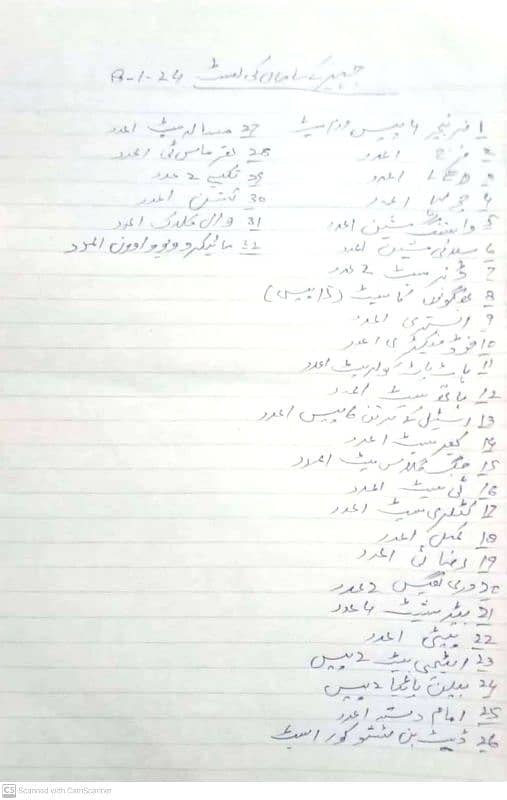 جہیز کے سامان کی لسٹ 8-1-24
1 فرنیچر 4 پیس
2 فریج 1 عدد
3 LED 1 عدد
4 1 عدد
5 واشنگ مشین 1 عدد
6 سلائی مشین 1 عدد
7 ڈنر سیٹ 2 عدد
8 سیٹ (15 پیس)
9 استری 1 عدد
10 فوڈ فیکٹری 1 عدد
11 ہاٹ پاٹ کولر سیٹ 1 عدد
12 باتھ سیٹ 1 عدد
13 اسٹیل کے برتن پیس 1 عدد
14 کھیر سیٹ 1 عدد
15 جگ گلاس سیٹ 1 عدد
16 ٹی سیٹ 1 عدد
17 کٹلری سیٹ 1 عدد
18 کمبل 1 عدد
19 رضائی 1 عدد
20 2 عدد
21 بیڈ شیٹ 4 عدد
22 پیٹی 1 عدد
23 اٹیچی 2 پیس
24 بیلن 2 پیس
25 امام دستہ 1 عدد
26 ڈسٹ بن ٹشو کور 1 سیٹ
27 مسالہ سیٹ 1 عدد
28 تھرماس ٹی 1 عدد
29 تکیے 2 عدد
30 کشن 1 عدد
31 وال کلاک 1 عدد
32 مائیکرو ویو اوون 1 عدد
CS Scanned with CamScanner